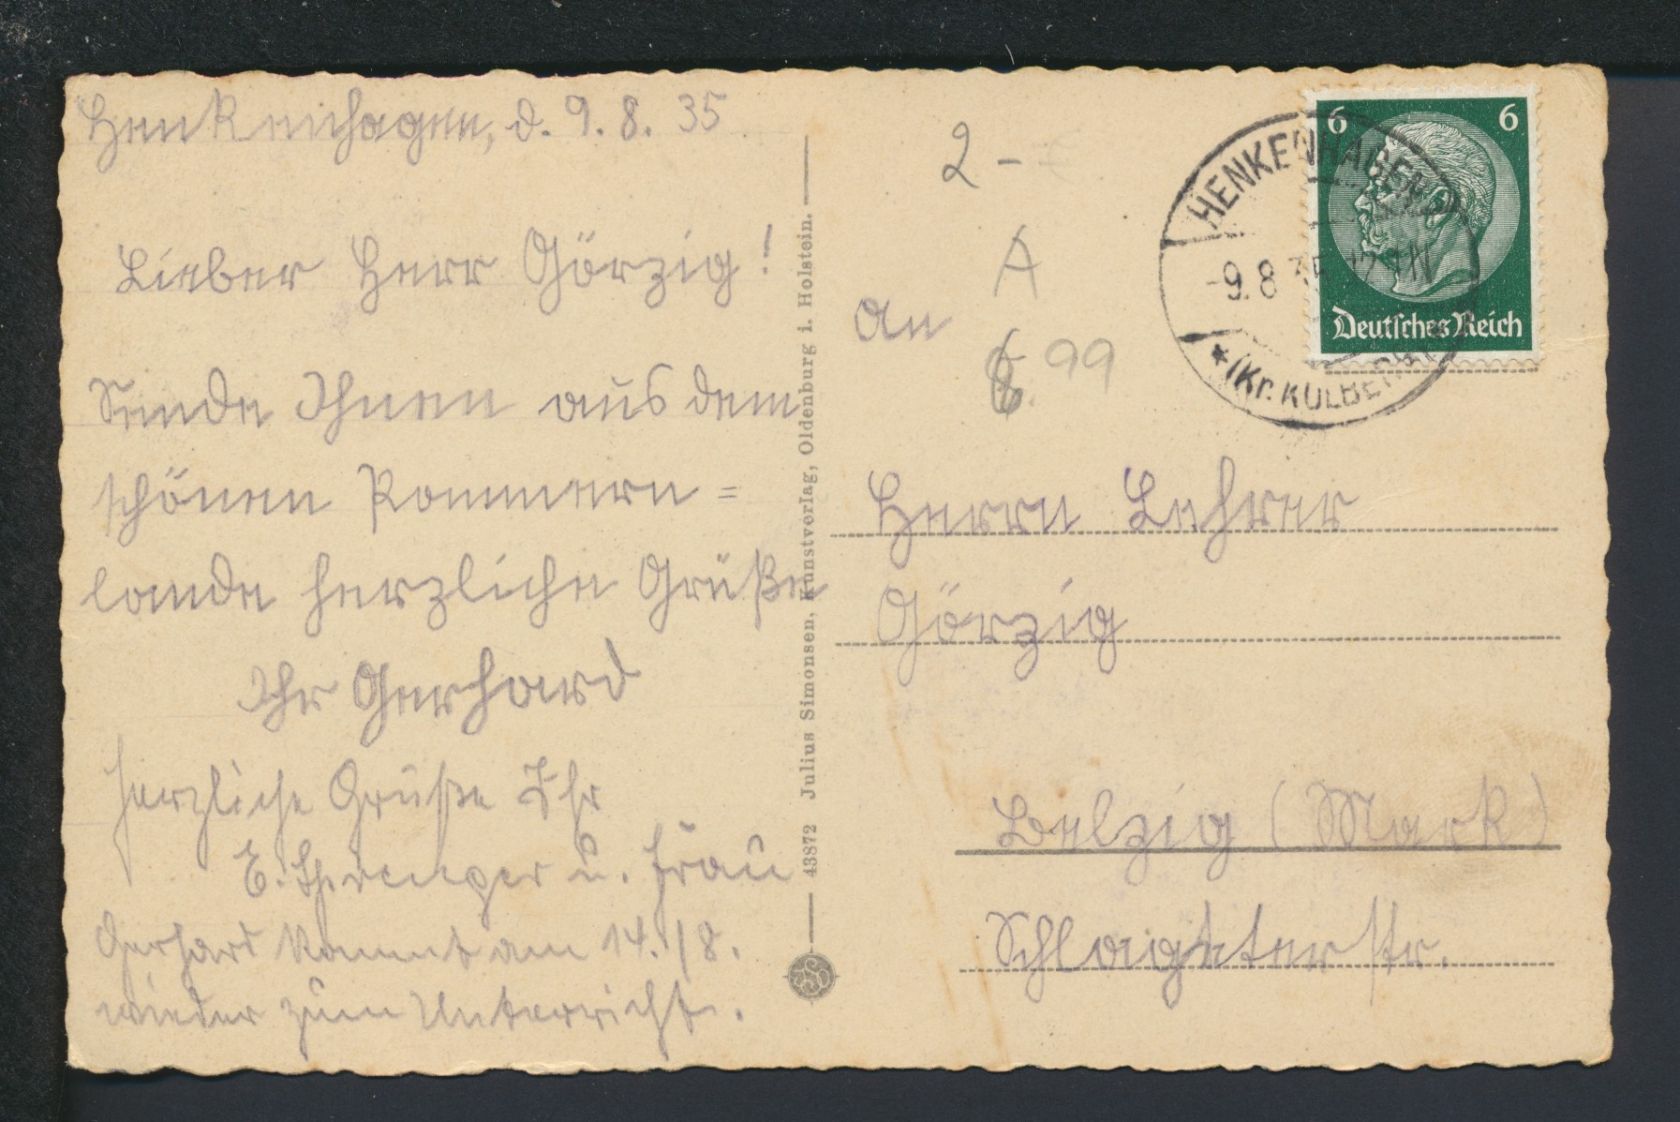 Henkenhagen, d. 9. 8. 35.
Lieber Herr Görzig!
Sende Ihnen aus dem
schönen Pommern=
lande herzliche Grüße
Ihr Gerhard
Herzliche Grüße Ihr
E. Sprenger u. Frau
Gerhard kommt am 14./8.
wieder zum Unterricht.
43872 Julius Simonsen, Kunstverlag, Oldenburg i. Holstein.
2 -
A
99
An
Herrn Lehrer
Görzig
Belzig (Mark)
Schlageterstr.
HENKENHAGEN
-9.8.35
* (Kr. KOLBERG)
6 6
Deutsches Reich